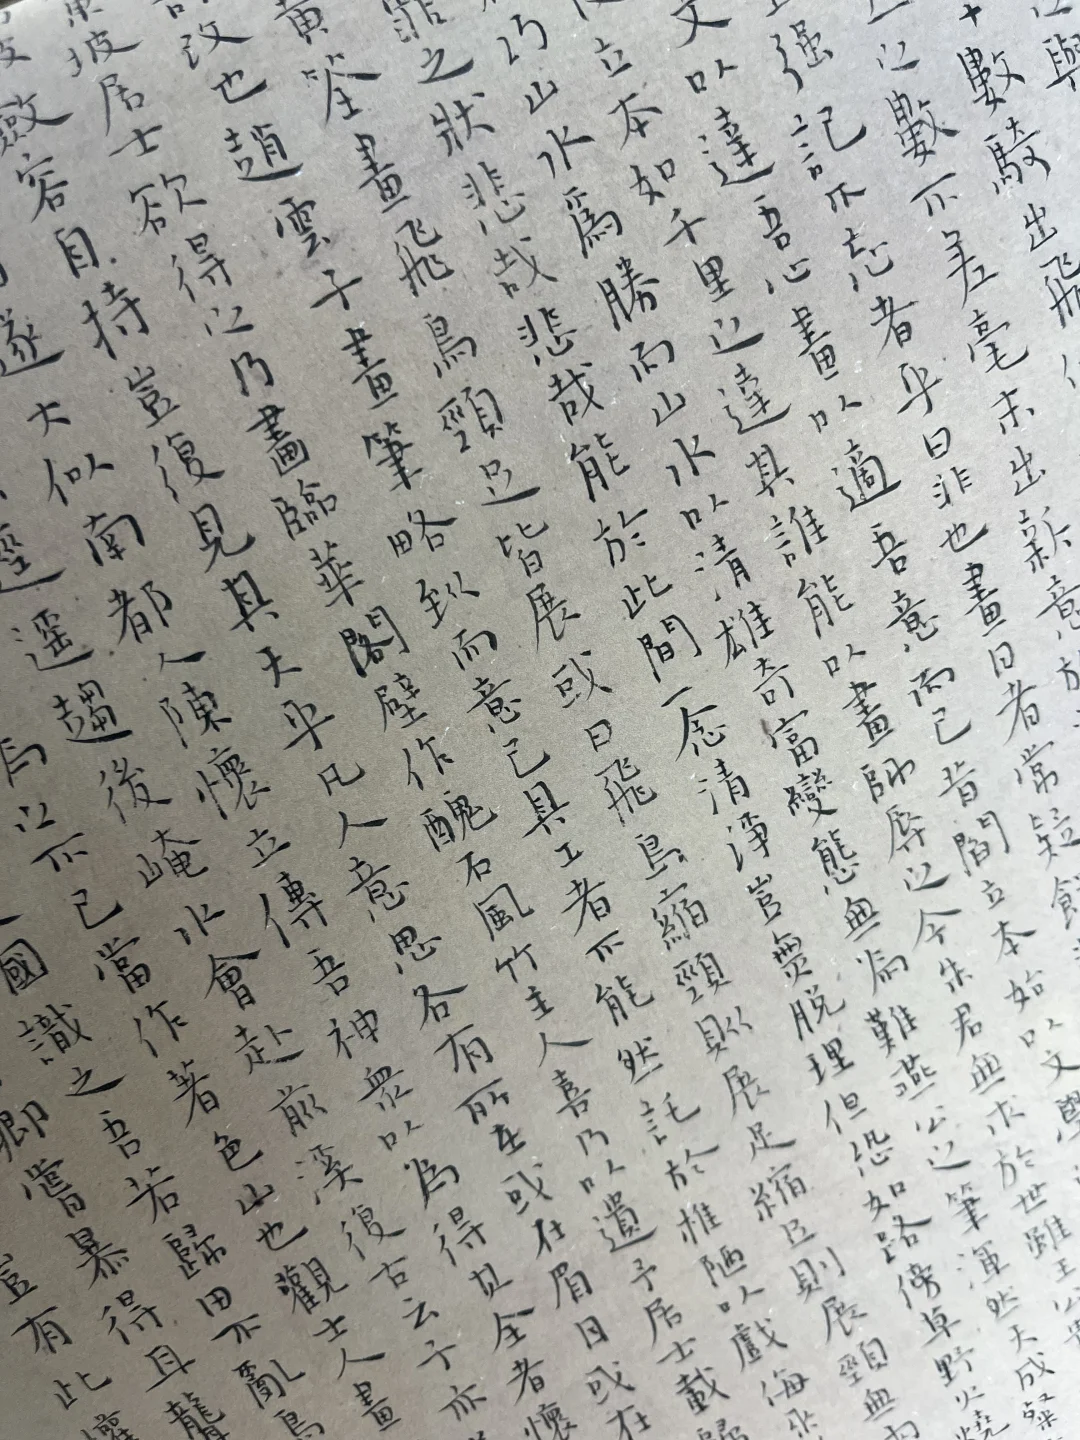 與
十數騎出飛
之數不差毫末出新意於
强記不忘者乎曰非也畫日者常疑餅
文以達吾心畫以適吾意而已昔閻立本始以文學
立本如千里之達其誰能以畫師辱之今朱君無求於世雖王公貴
巧山水爲勝而山水以清雄奇富變態無爲難燕公之筆渾然天成粲
罪之狀悲哉悲哉能於此間一念清淨豈無脱理但恐如路傍草野火燒
黄筌畫飛鳥頸足皆展或曰飛鳥縮頸則展足縮足則展頸無兩
改也趙雲子畫筆略到而意已具工者不能然託於椎陋以戲侮
東坡居士欲得之乃畫臨華閣壁作醜石風竹主人喜乃以遺予居士載歸
斂容自持豈復見其天乎凡人意思各有所在或在眉目或在
遂大似南都人陳懷立傳吾神衆以爲得其全者懷
遥趨後崦水會赴前溪復古云予亦
馬之不已當作著色山也觀士人畫
國識之吾若歸田不亂鳥
卿嘗暴得耳聾
豈有此